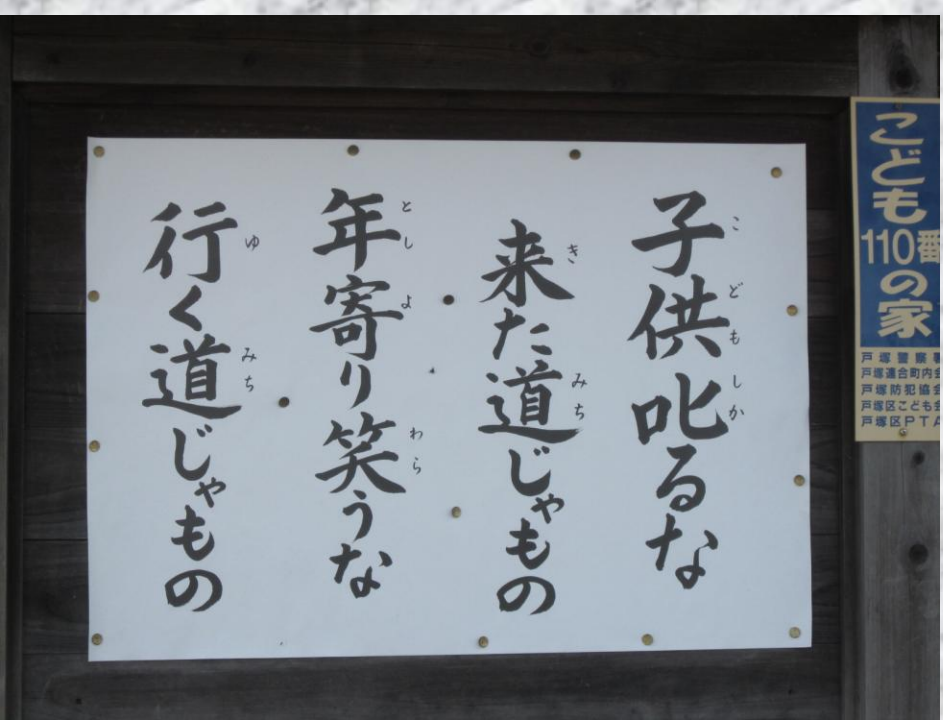 子供叱るな
来た道じゃもの
年寄り笑うな
行く道じゃもの
こども
110番
の家
戸塚警察署
戸塚連合町内会
戸塚防犯協会
戸塚区こども会
戸塚区PTA